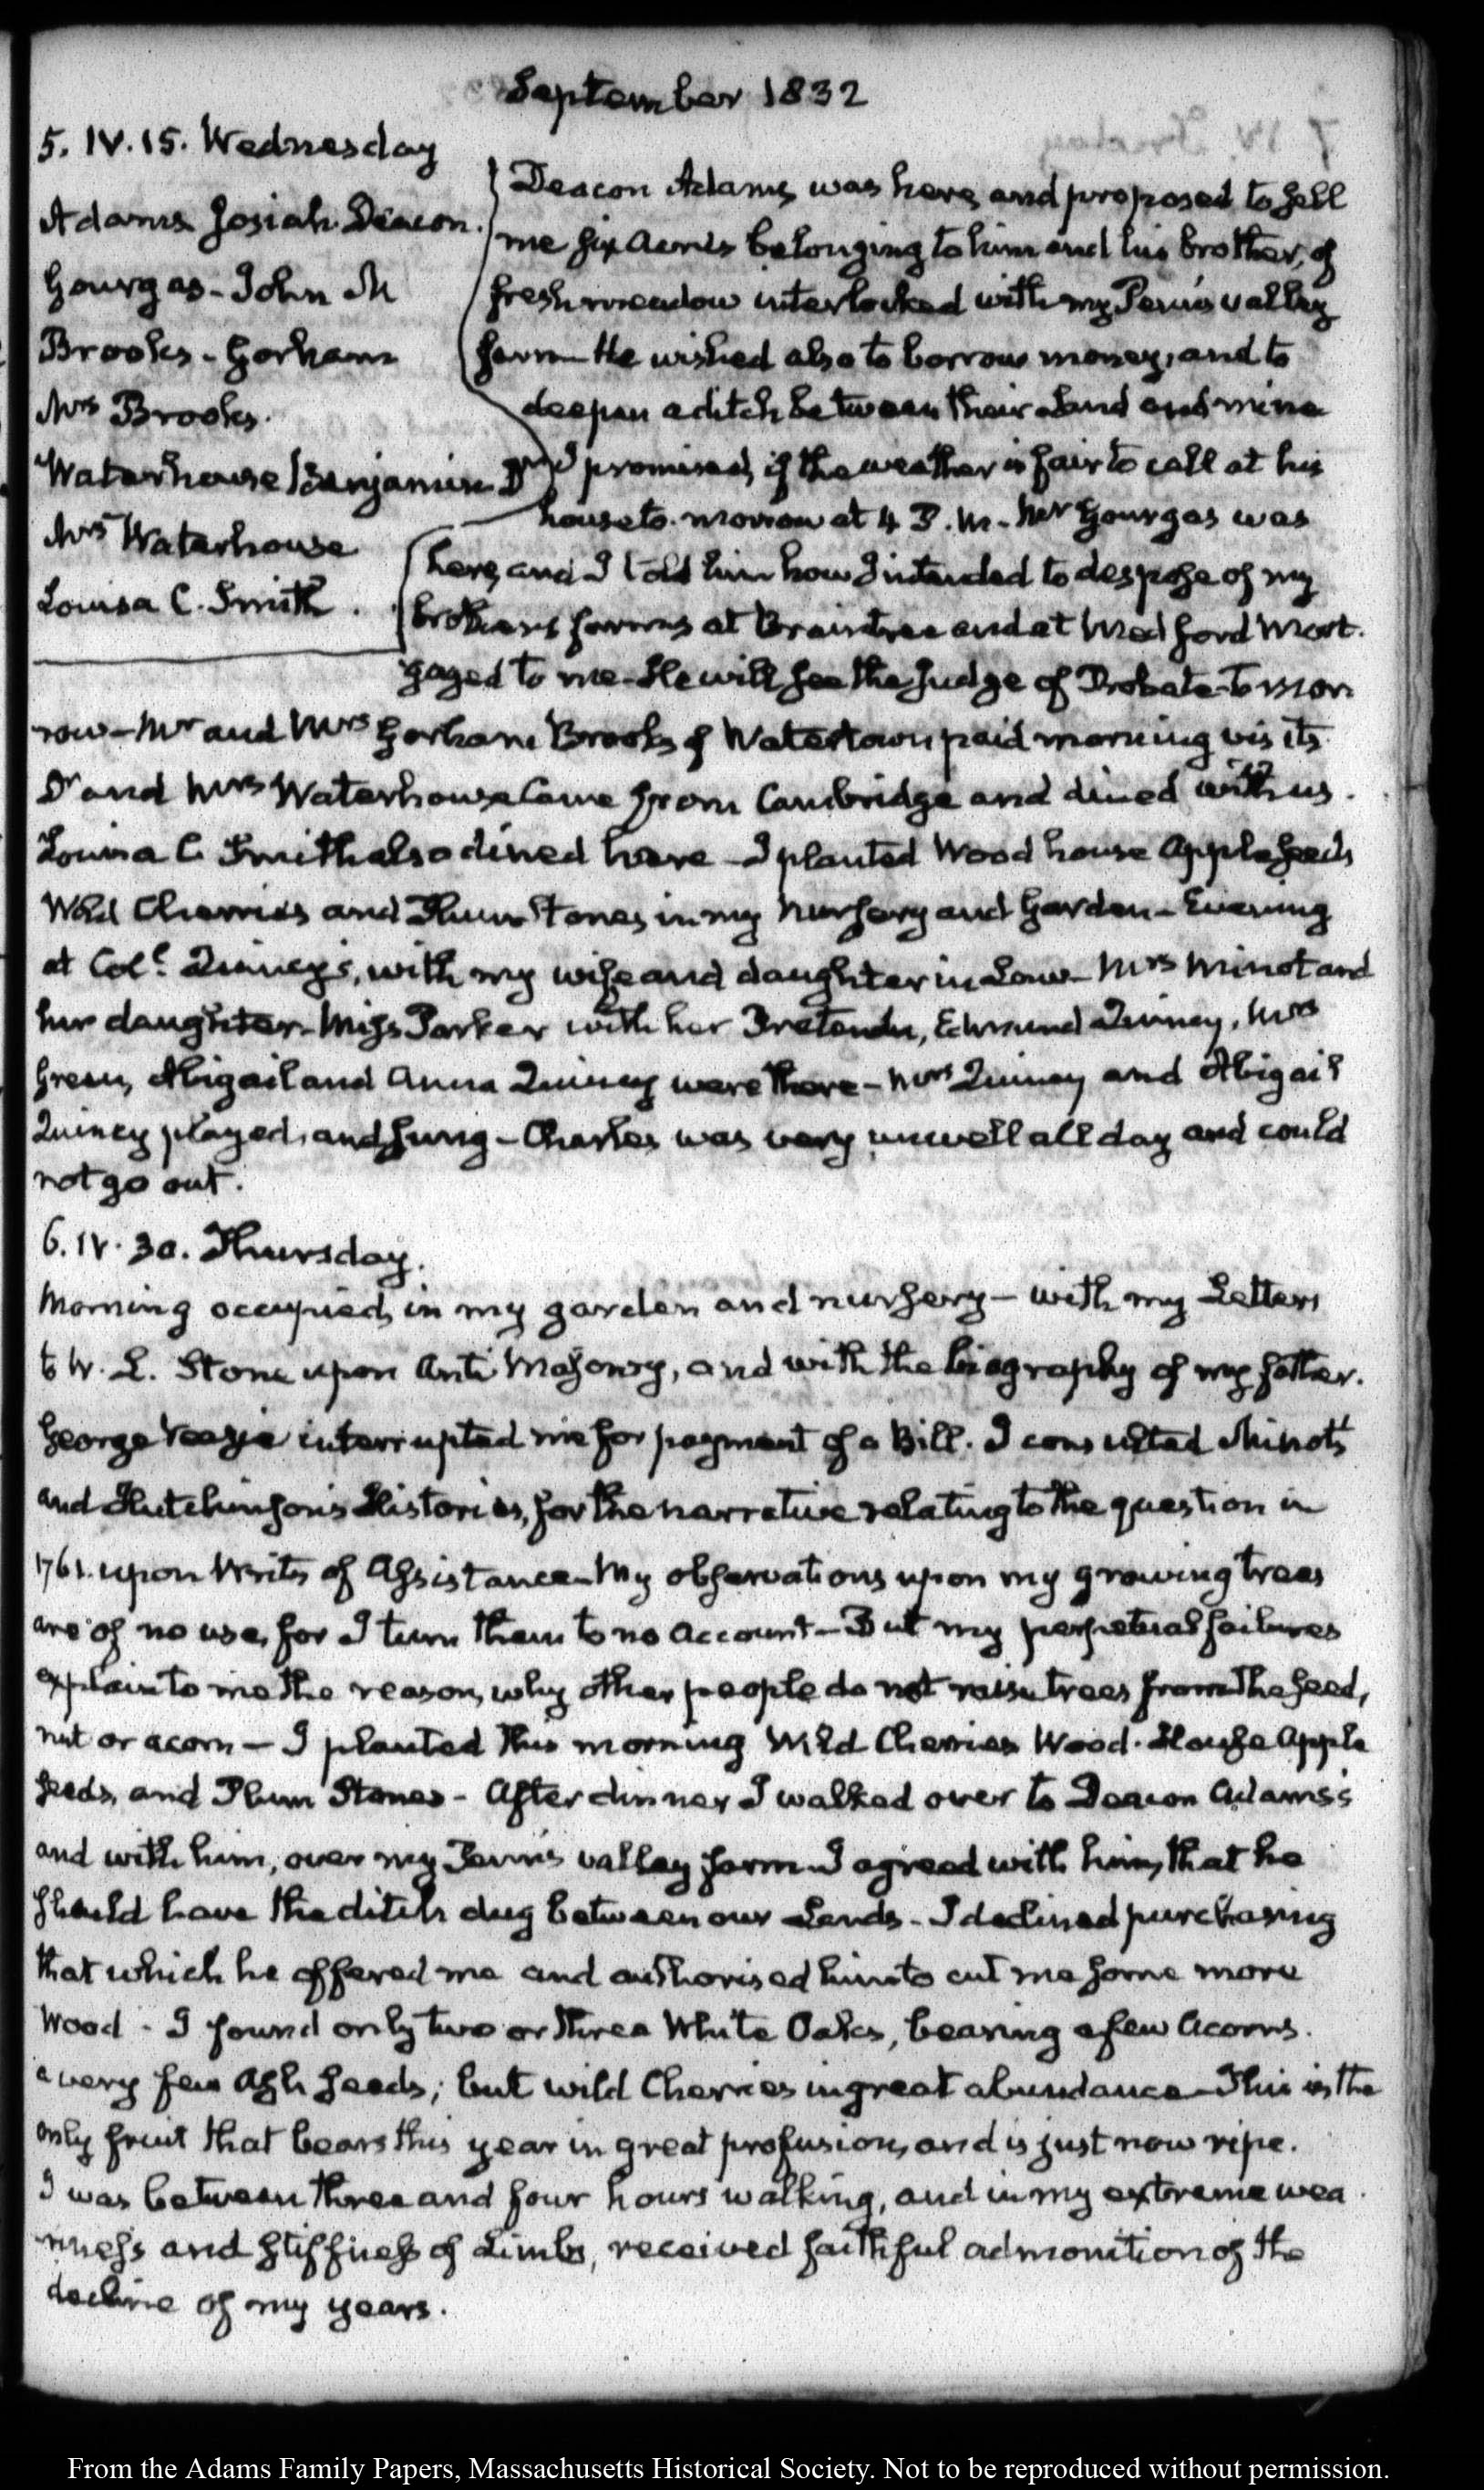 September 1832
5. IV. 15. Wednesday
Adams Josiah. Deacon.
Gourgas - John M
Brooks - Gorham
Mrs Brooks.
Waterhouse Benjamin Dr
Mrs Waterhouse
Louisa C. Smith.
Deacon Adams was here, and proposed to sell
me six acres belonging to him and his brother, of
fresh meadow interlocked with my Penn's valley
farm - He wished also to borrow money, and to
deepen a ditch between their Land and mine
I promised, if the weather is fair to call at his
house to-morrow at 4 P.M. - Mr Gourgas was
here, and I told him how I intended to dispose of my
brother's farms at Braintree and at Medford Mort-
gaged to me - He will see the Judge of Probate to mor-
row - Mr and Mrs Gorham Brooks of Watertown paid morning visits
Dr and Mrs Waterhouse came from Cambridge and dined with us.
Louisa C Smith also dined here - I planted Wood house Apple seeds
Wild Cherries and Plum Stones in my Nursery and Garden - Evening
at Coll. Quincy's, with my wife and daughter in Law - Mrs Minot and
her daughter - Miss Parker with her Pretendu, Edmund Quincy, Mrs
Green, Abigail and Anna Quincy were there - Mrs Quincy and Abigail
Quincy played, and sung - Charles was very unwell all day and could
not go out.
6. IV. 30. Thursday.
Morning occupied, in my garden and nursery - with my Letters
to W. L. Stone upon Anti Masonry, and with the biography of my father.
George Veazie interrupted me for payment of a Bill. I consulted Minot's
and Hutchinson's Histories, for the narrative relating to the question in
1761. upon Writs of Assistance - My observations upon my growing trees
are of no use, for I turn them to no account - But my perpetual failures
explain to me the reason, why other people do not raise trees from the seed,
nut or acorn - I planted this morning Wild Cherries Wood-House Apple
seeds, and Plum Stones - After dinner I walked over to Deacon Adams's
and with him, over my Penn's valley farm - I agreed with him, that he
should have the ditch dug between our Lands - I declined purchasing
that which he offered me and authorised him to cut me some more
Wood - I found only two or three White Oaks, bearing a few Acorns.
a very few Ash seeds; but wild Cherries in great abundance - This is the
only fruit that bears this year in great profusion, and is just now ripe.
I was between three and four hours walking, and in my extreme wea-
riness and stiffness of Limbs, received faithful admonition of the
decline of my years.
From the Adams Family Papers, Massachusetts Historical Society. Not to be reproduced without permission.